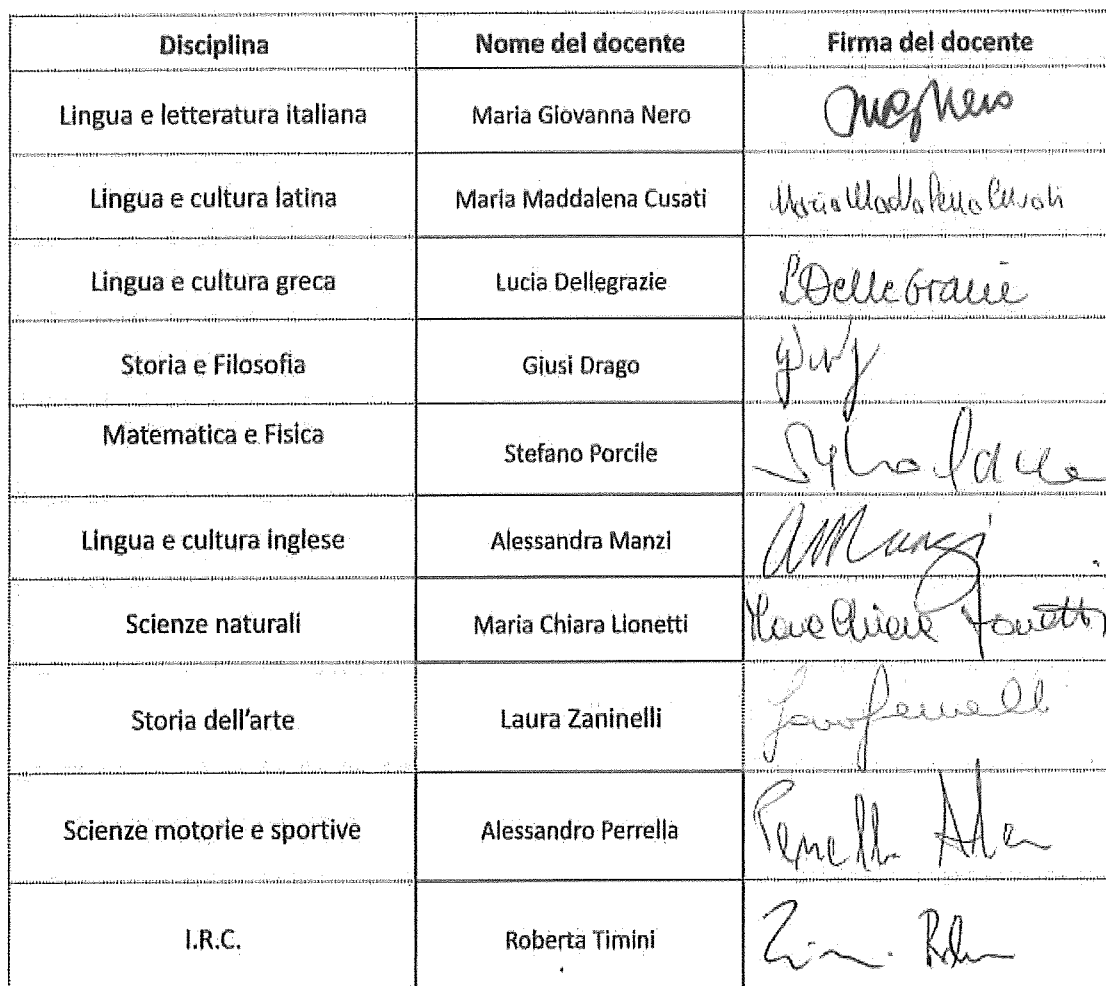 Disciplina Nome del docente Firma del docente
Lingua e letteratura italiana Maria Giovanna Nero
Lingua e cultura latina Maria Maddalena Cusati Maria Maddalena Cusati
Lingua e cultura greca Lucia Dellegrazie LDellegrazie
Storia e Filosofia Giusi Drago
Matematica e Fisica Stefano Porcile
Lingua e cultura inglese Alessandra Manzi AManzi
Scienze naturali Maria Chiara Lionetti Maria Chiara Lionetti
Storia dell'arte Laura Zaninelli
Scienze motorie e sportive Alessandro Perrella Perrella
I.R.C. Roberta Timini